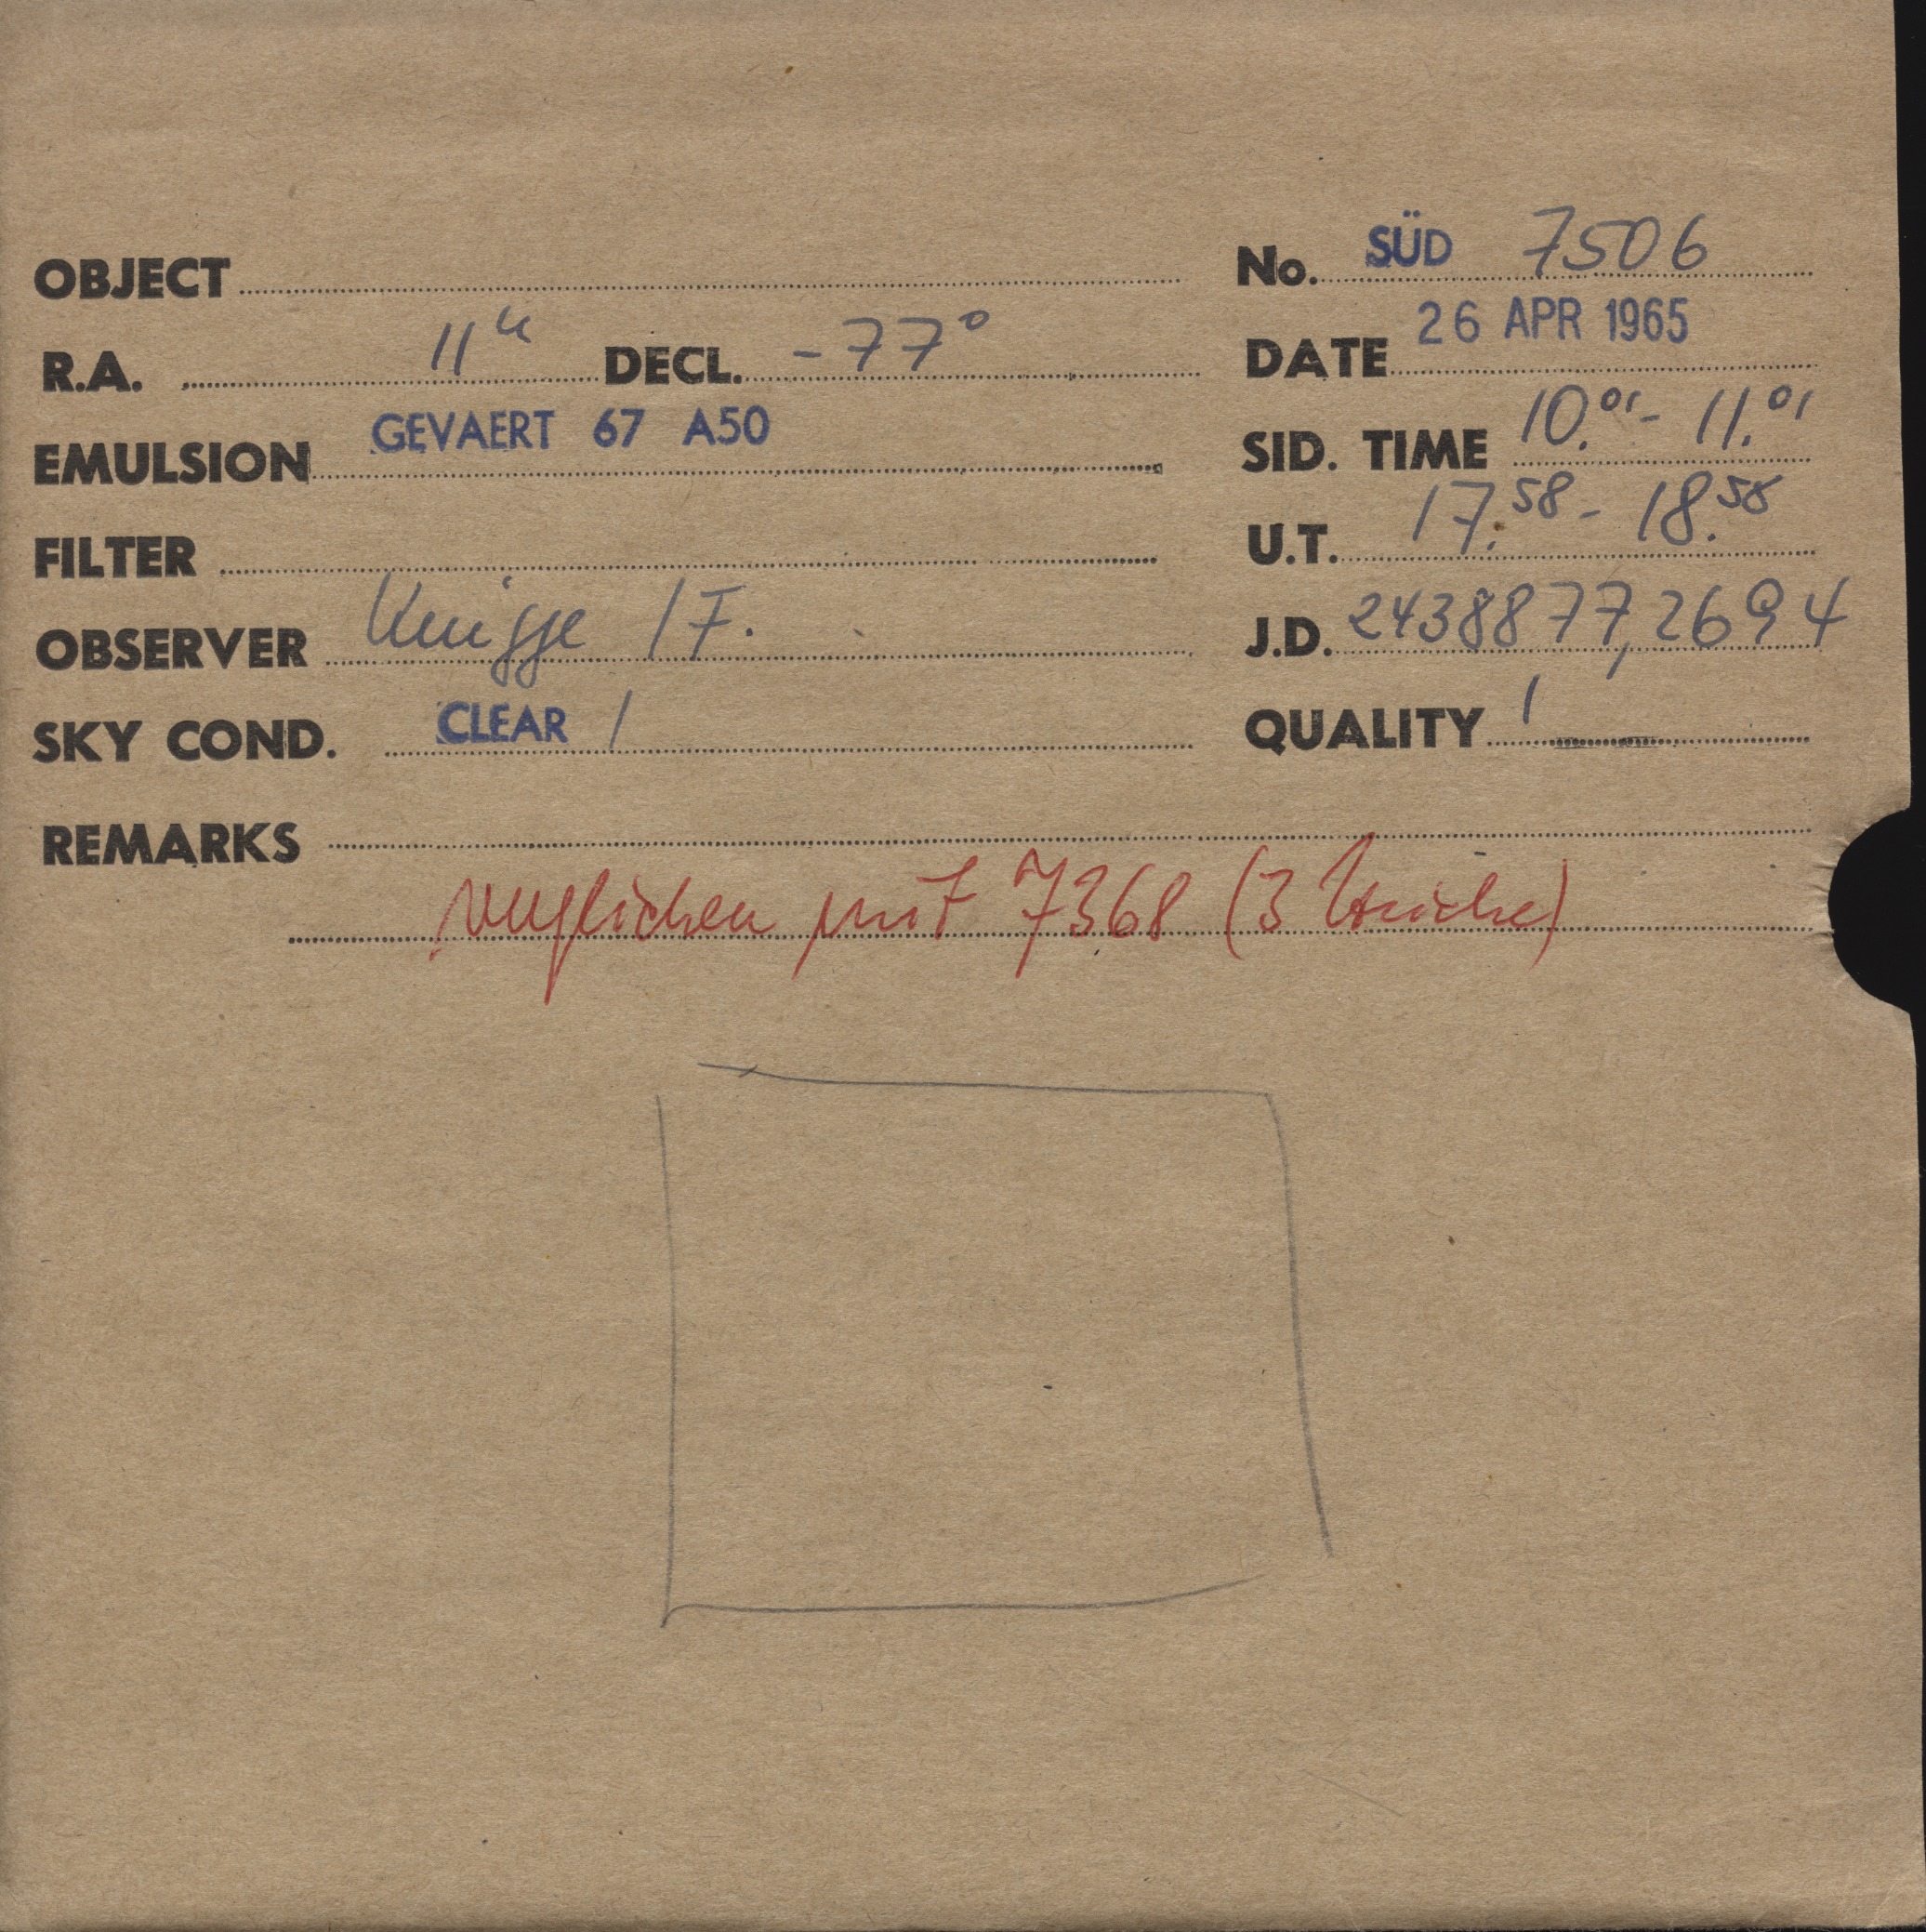 OBJECT No. SÜD 7506
R.A. 11h DECL. -77° DATE 26 APR 1965
EMULSION GEVAERT 67 A50 SID. TIME 10.01 - 11.01
FILTER U.T. 17.58 - 18.58
OBSERVER Knigge / F. J.D. 2438877,2694
SKY COND. CLEAR 1 QUALITY 1
REMARKS
verglichen mit 7368 (3 Striche)